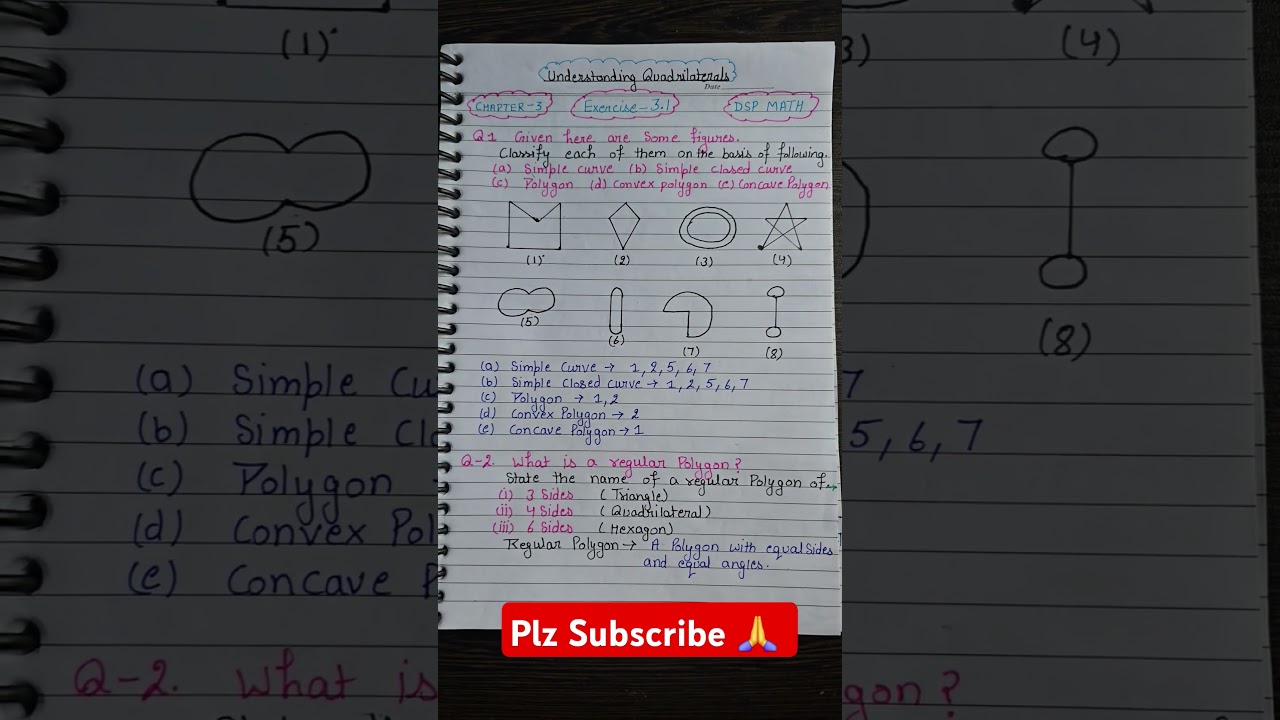 Understanding Quadrilaterals
Date
CHAPTER-3 Exercise-3.1 DSP MATH
Q1 Given here are some figures.
Classify each of them on the basis of following.
(a) Simple curve (b) Simple closed curve
(c) Polygon (d) Convex polygon (e) Concave Polygon
(1) (2) (3) (4)
(5) (6) (7) (8)
(a) Simple Curve → 1, 2, 5, 6, 7
(b) Simple Closed Curve → 1, 2, 5, 6, 7
(c) Polygon → 1, 2
(d) Convex Polygon → 2
(e) Concave Polygon → 1
Q-2. What is a regular Polygon?
State the name of a regular Polygon of→
(i) 3 Sides (Triangle)
(ii) 4 Sides (Quadrilateral)
(iii) 6 Sides (Hexagon)
Regular Polygon → A Polygon with equal Sides
and equal angles.
Plz Subscribe 🙏
(1)
(5)
(a) Simple Cu
(b) Simple Clo
(c) Polygon
(d) Convex Pol
(e) Concave P
Q-2. What is
3) (4)
(8)
7
5, 6, 7
ygon?